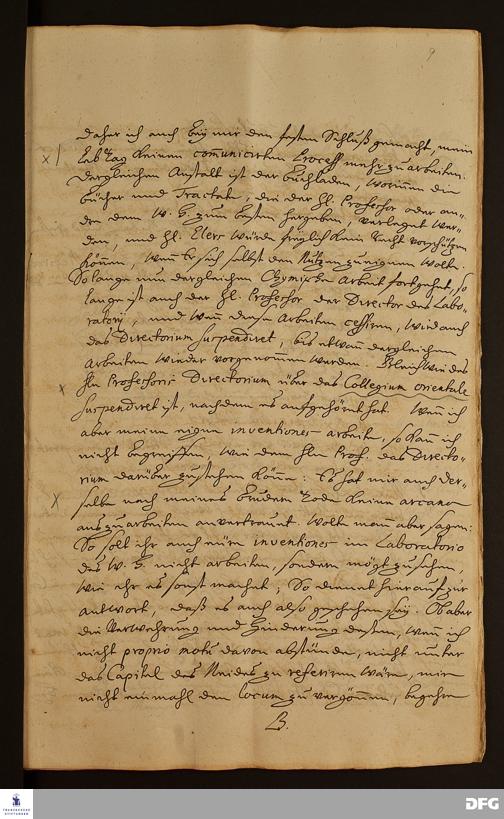 9
daher ich auch bey mir den festen Schluß gemacht, mein
Leb Tag keinen com̄unicirten Process mehr zu arbeiten.
dergleichen Anstalt ist der Buchladen, worinnen die
bücher und Tractate, die der Hl. Professor oder an-
dre dem W. H. zum besten hergeben, verlegt wer-
den, und Hl. Elers würde freylich kein Recht vorschützen
können, wenn Er sich selbst den Nutzen zueignen wolte.
So lange nun dergleichen Chymische Arbeit fortgehet, so
lange ist auch der Hl. Professor der Director des Labo-
ratorij, und wenn diese Arbeiten cessiren, wird auch
das Directorium suspendiret, bis etwan dergleichen
Arbeiten wieder vorgenommen werden. Gleichwie des
Hn Professoris Directorium über das Collegium orientale
suspendiret ist, nachdem es aufgehöret hat. Wenn ich
aber meine eigne inventiones arbeite, so kan ich
nicht begreiffen, wie dem Hn Prof. das Directo-
rium darüber zustehen könne: Es hat mir auch der-
selbe nach meines bruders Tode keine arcana
auszuarbeiten anvertrauet. Wolte man aber sagen:
So solt ihr auch eure inventiones im Laboratorio
des W. H. nicht arbeiten, sondern mögt zusehen,
wie ihr es sonst machet; So dienet hierauf zur
antwort, daß es auch also geschehen sey. Ob aber
die Verwehrung und Hinderung dessen, wenn ich
nicht proprio motu davon abstünde, nicht unter
das Capitel des Neides zu referiren wäre, mir
nicht einmahl den locum zu vergönnen, begehre
FRANCKESCHE
STIFTUNGEN
DFG